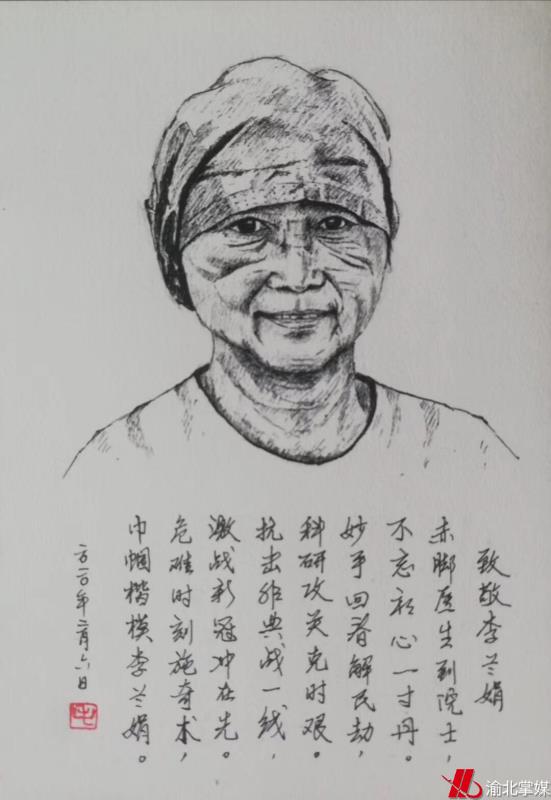 致敬李兰娟
赤脚医生到院士，
不忘初心一寸丹。
妙手回春解民劫，
科研攻关克时艰。
抗击非典战一线，
激战新冠冲在先。
危难时刻施奇术，
巾帼楷模李兰娟。
二〇二〇年二月六日
渝北掌媒